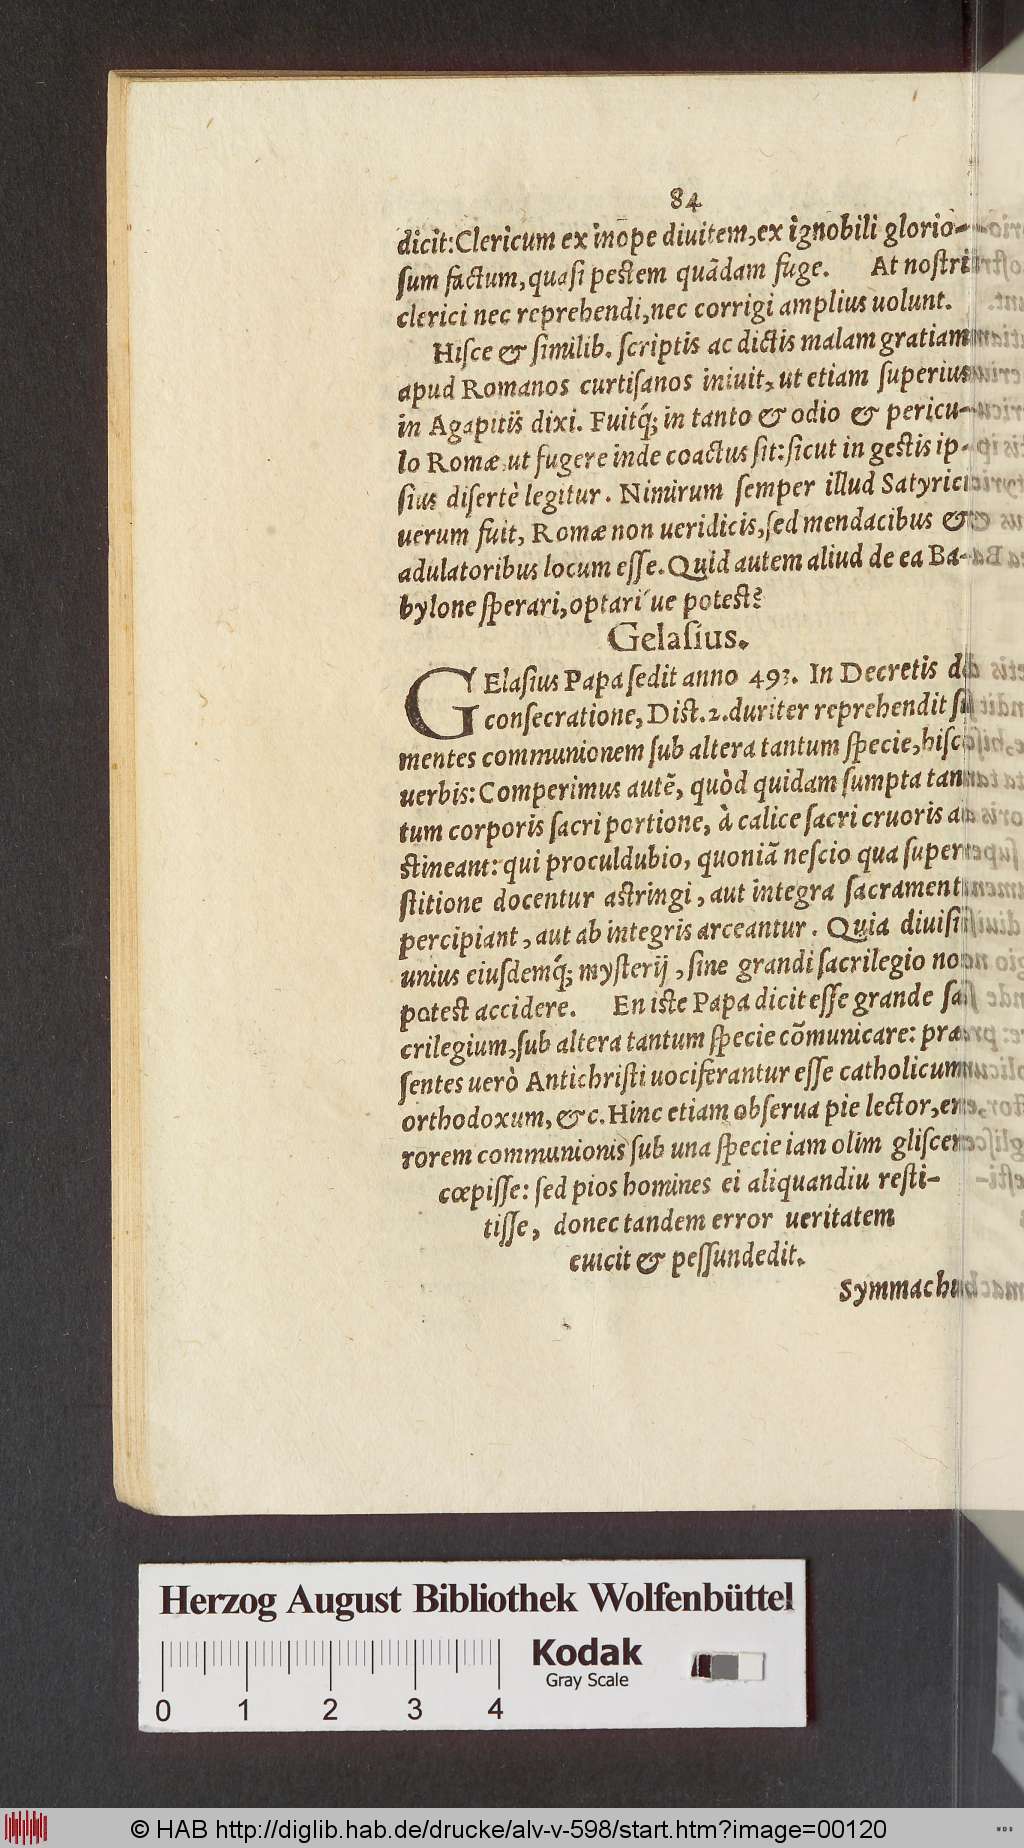 84
dicit: Clericum ex inope diuitem, ex ignobili glorio-
ſum factum, quaſi peſtem quãdam fuge. At noſtri
clerici nec reprehendi, nec corrigi amplius uolunt.
Hiſce & ſimilib. ſcriptis ac dictis malam gratiam
apud Romanos curtiſanos iniuit, ut etiam ſuperius
in Agapitij dixi. Fuitq́; in tanto & odio & pericu-
lo Romæ ut fugere inde coactus ſit: ſicut in geſtis ip-
ſius diſertè legitur. Nimirum ſemper illud Satyrici
uerum fuit, Romæ non ueridicis, ſed mendacibus &
adulatoribus locum eſſe. Quid autem aliud de ea Ba-
bylone ſperari, optari´ue poteſt?
Gelaſius.
GElaſius Papa ſedit anno 493. In Decretis de
conſecratione, Diſt. 2. duriter reprehendit ſu
mentes communionem ſub altera tantum ſpecie, hiſce
uerbis: Comperimus autẽ, quòd quidam ſumpta tan
tum corporis ſacri portione, à calice ſacri cruoris ab
ſtineant: qui proculdubio, quoniã neſcio qua ſuper
ſtitione docentur aſtringi, aut integra ſacramenta
percipiant, aut ab integris arceantur. Quia diuiſio
unius eiuſdemq́; myſterij, ſine grandi ſacrilegio non
poteſt accidere. En iſte Papa dicit eſſe grande ſa-
crilegium, ſub altera tantum ſpecie cõmunicare: præ-
ſentes uerò Antichriſti uociferantur eſſe catholicum
orthodoxum, &c. Hinc etiam obſerua pie lector, er-
rorem communionis ſub una ſpecie iam olim gliſcere
cœpiſſe: ſed pios homines ei aliquandiu reſti-
tiſſe, donec tandem error ueritatem
euicit & peſſundedit.
Symmachus
Herzog August Bibliothek Wolfenbüttel
Kodak
Gray Scale
0 1 2 3 4
© HAB http://diglib.hab.de/drucke/alv-v-598/start.htm?image=00120